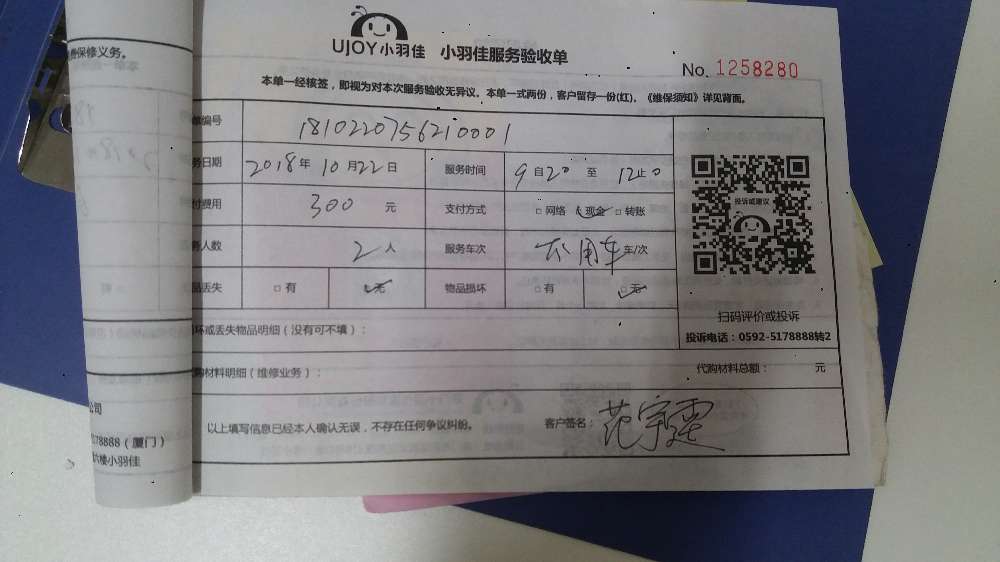 UJOY小羽佳 小羽佳服务验收单
No. 1258280
费保修义务。
本单一经核签，即视为对本次服务验收无异议。本单一式两份，客户留存一份(红)，《维保须知》详见背面。
单编号 1810220756210001
务日期 2018年10月22日 服务时间 9自20至12止0
付费用 300元 支付方式 □网络 □现金 □转账
投诉或建议
务人数 2人 服务车次 不用车车/次
品丢失 □有 □无 物品损坏 □有 □无
扫码评价或投诉
投诉电话：0592-5178888转2
坏或丢失物品明细（没有可不填）：
购材料明细（维修业务）： 代购材料总额： 元
以上填写信息已经本人确认无误，不存在任何争议纠纷。 客户签名：范宇霆
公司
5178888（厦门）
六楼小羽佳